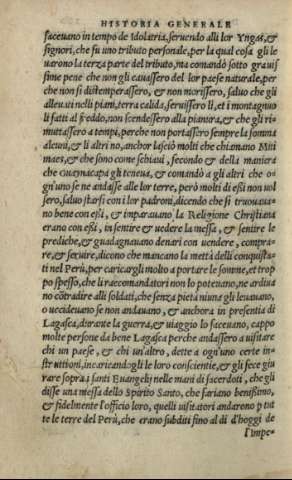 HISTORIA GENERALE
faceuano in tempo de Idolatria, seruendo alli lor Yngas, &
signori, che fu uno tributo personale, per la qual cosa gli le
uarono la terza parte del tributo, ma comandò sotto grauis
sime pene che non gli cauassero del lor paese naturale, per
che non si distemperassero, & non morissero, saluo che gli
alleuati nelli piani, terra calida, seruissero lì, et i montagnuo
li fatti al freddo, non scendessero alla pianura, & che gli ri-
mutassero a tempi, perche non portassero sempre la somma
alcuni, & li altri no, anchor lasciò molti che chiamano Miti
maes, & che sono come schiaui, secondo & della maniera
che Guaynacapa gli teneua, & comandò a gli altri che o-
gn'uno se ne andasse alle lor terre, però molti di essi non uol
sero, saluo starsi con i lor padroni, dicendo che si trouaua-
no bene con essi, & imparauano la Religione Christiana
erano con essi, in sentire & uedere la messa, & sentire le
prediche, & guadagnauano denari con uendere, compra-
re, & seruire, dicono che mancano la mettà delli conquista-
ti nel Perù, per caricargli molto a portare le somme, et trop
po spesso, che li raccomandatori non lo poteuano, ne ardiua
no cõtradire alli soldati, che senza pietà niuna gli leuauano,
o uccideuano se non andauano, & anchora in presentia di
Lagasca, durante la guerra, & uiaggio lo faceuano, cappo
molte persone da bene Lagasca perche andassero a uisitare
chi un paese, & chi un'altro, dette a ogn'uno certe in-
struttioni, incaricandogli le loro conscientie, & gli fece giu
rare sopra i santi Euangelij nelle mani di sacerdoti, che gli
disse una messa dello Spirito Santo, che fariano benissimo,
& fidelmente l'officio loro, quelli uisitatori andareno p tut
te le terre del Perù, che erano subditi fino al dì d'hoggi de
l'Impe-